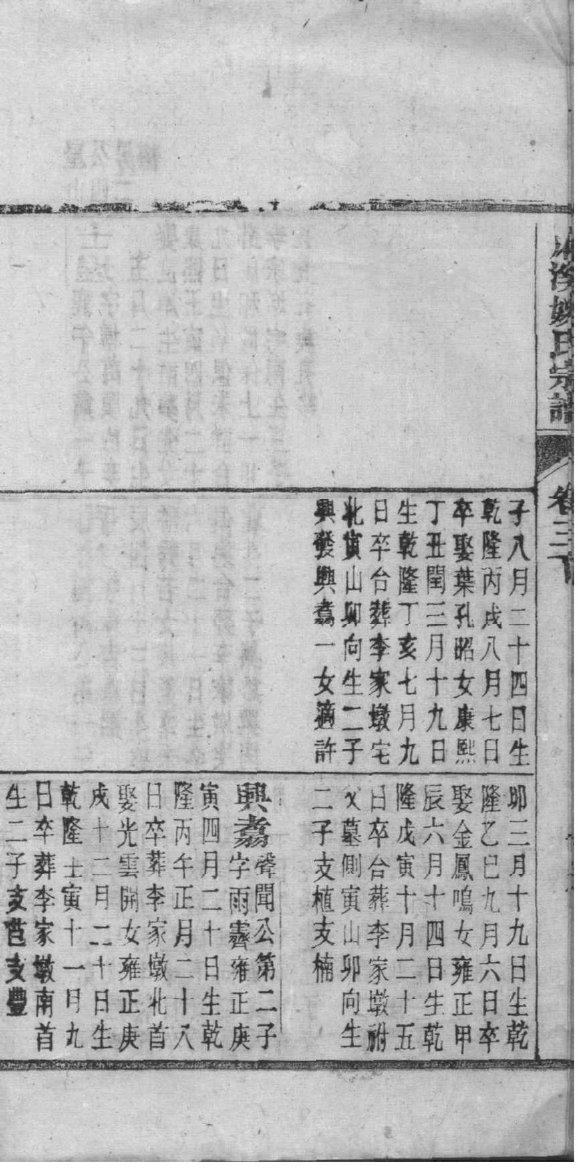 溪姚氏宗譜
卷三
子八月二十四日生
乾隆丙戌八月七日
卒娶葉孔昭女康熙
丁丑閏三月十九日
生乾隆丁亥七月九
日卒合葬李家墩宅
北寅山卯向生二子
興發興翥一女適許
卯三月十九日生乾
隆乙巳九月六日卒
娶金鳳鳴女雍正甲
辰六月十四日生乾
隆戊寅十月二十五
日卒合葬李家墩祔
父墓側寅山卯向生
二子支植支楠
興翥聲聞公第二子
字雨霽雍正庚
寅四月二十日生乾
隆丙午正月二十八
日卒葬李家墩北首
娶光雲開女雍正庚
戌十二月二十日生
乾隆壬寅十一月九
日卒葬李家墩南首
生二子支芑支豐